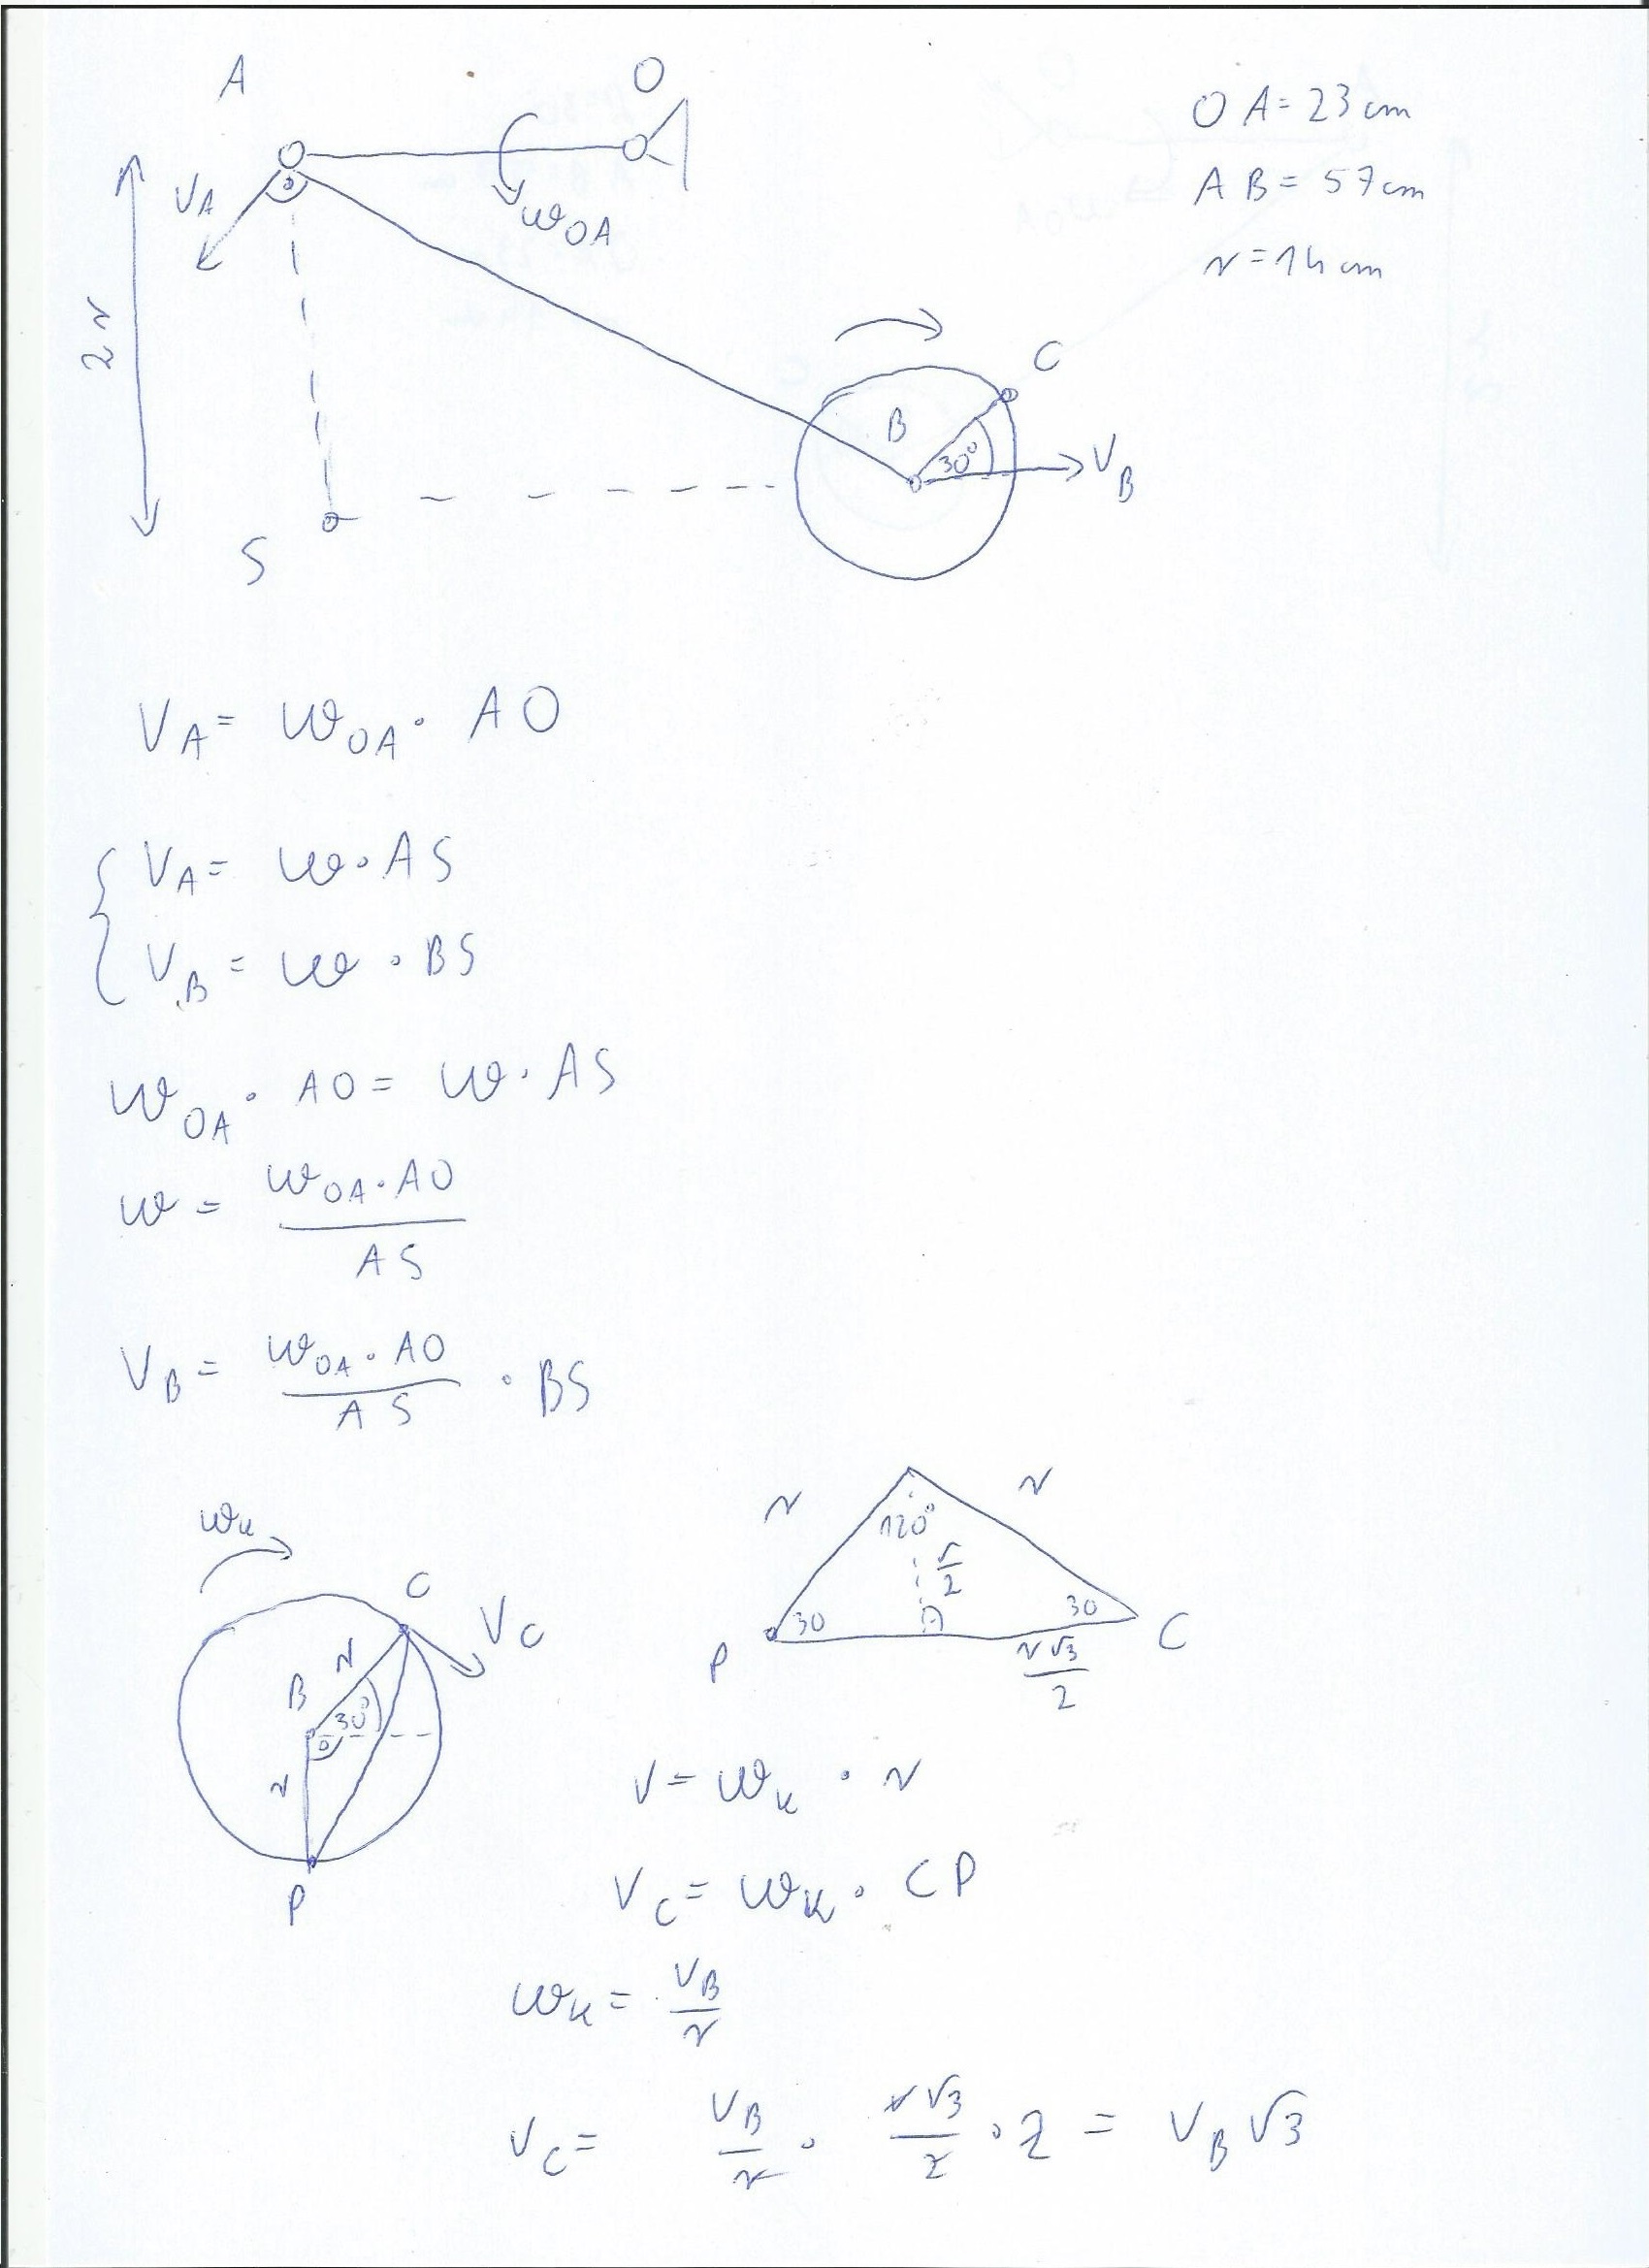 A
O
O A = 23 cm
V_A
ω_OA
A B = 57 cm
r = 14 cm
2 r
C
B
30°
V_B
S
V_A = ω_OA · A O
V_A = ω · A S
V_B = ω · B S
ω_OA · A O = ω · A S
ω = ω_OA · A O / A S
V_B = ω_OA · A O / A S · B S
ω_k
C
V_C
r
B
30°
r
P
r
r
120°
r/2
30
30
P
C
r√3/2
V = ω_k · r
V_C = ω_k · C P
ω_k = V_B / r
V_C = V_B / r · r√3 / 2 · 2 = V_B √3